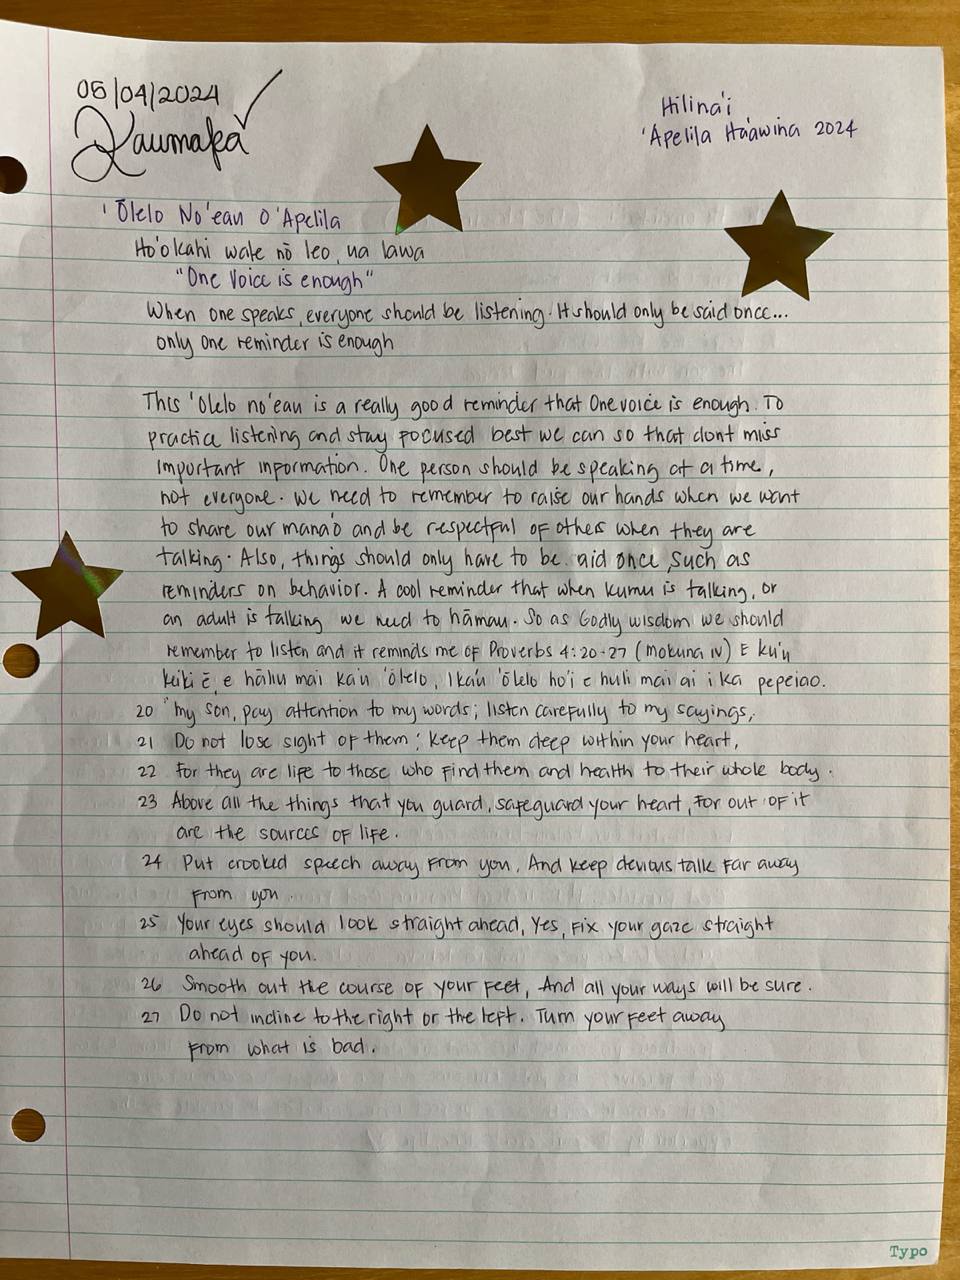 05/04/2024
Kaumaka
Hilina'i
'Apelila Ha'awina 2024
'Ōlelo No'eau O 'Apelila
Ho'okahi wale nō leo, ua lawa
"One Voice is enough"
When one speaks, everyone should be listening. It should only be said once...
only one reminder is enough
This 'Olelo no'eau is a really good reminder that One voice is enough. To
practice listening and stay focused best we can so that dont miss
important information. One person should be speaking at a time,
not everyone. We need to remember to raise our hands when we want
to share our mana'o and be respectful of others when they are
talking. Also, things should only have to be aid once, such as
reminders on behavior. A cool reminder that when kumu is talking, or
an adult is talking we need to hāmau. So as Godly wisdom we should
remember to listen and it reminds me of Proverbs 4:20-27 (mokuna IV) E ku'u
keiki ē, e hāliu mai ka'u 'ōlelo, I ka'u 'ōlelo ho'i e huli mai ai i ka pepeiao.
20 "my son, pay attention to my words; listen carefully to my sayings,
21 Do not lose sight of them; keep them deep within your heart,
22 For they are life to those who find them and health to their whole body.
23 Above all the things that you guard, safeguard your heart, For out of it
are the sources of life.
24 Put crooked speech away from you, And keep devious talk far away
from you.
25 Your eyes should look straight ahead, Yes, Fix your gaze straight
ahead of you.
26 Smooth out the course of your feet, And all your ways will be sure.
27 Do not incline to the right or the left. Turn your feet away
from what is bad.
Typo